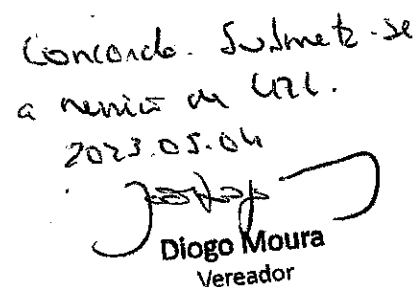 Concordo. Submete-se
a reunião de CML.
2023.05.04
Diogo Moura
Vereador